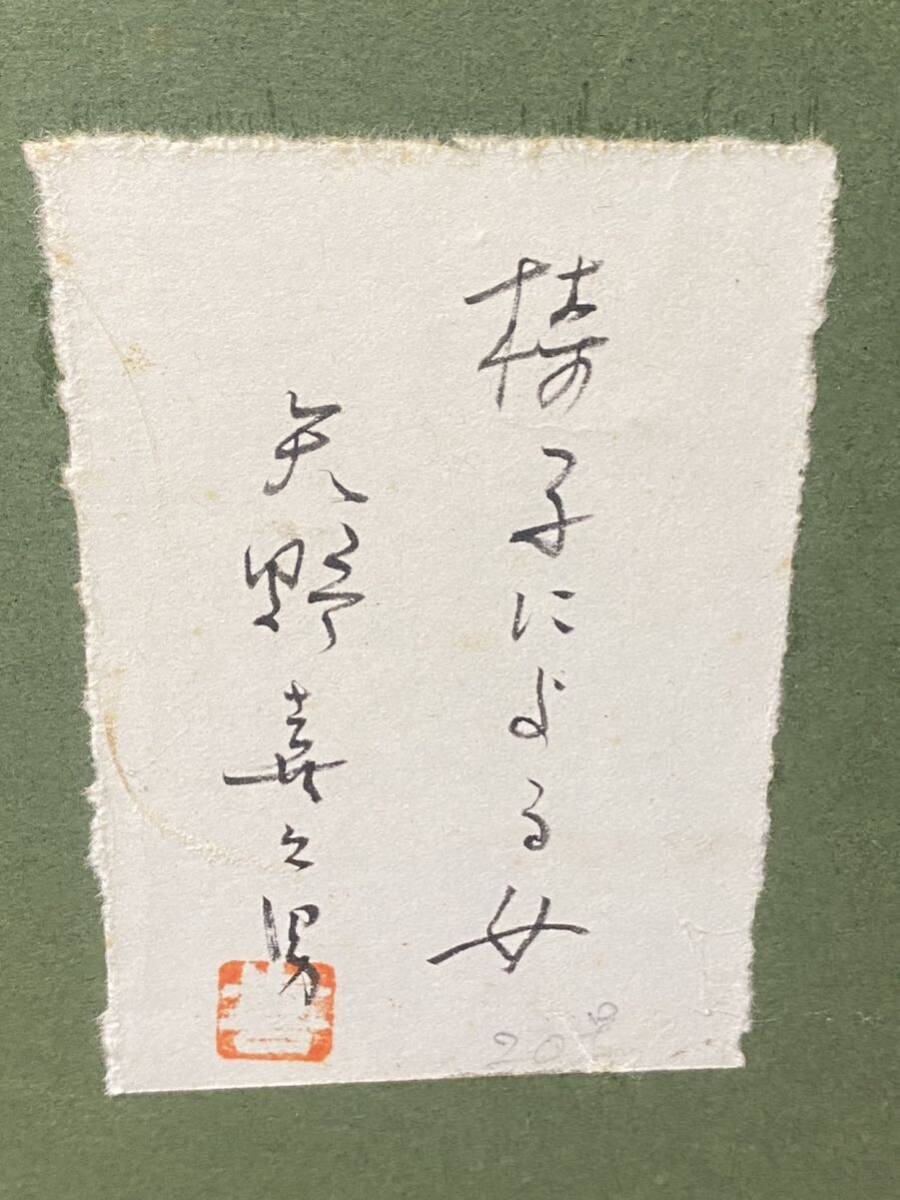 椅子による女
矢野喜久男
20号